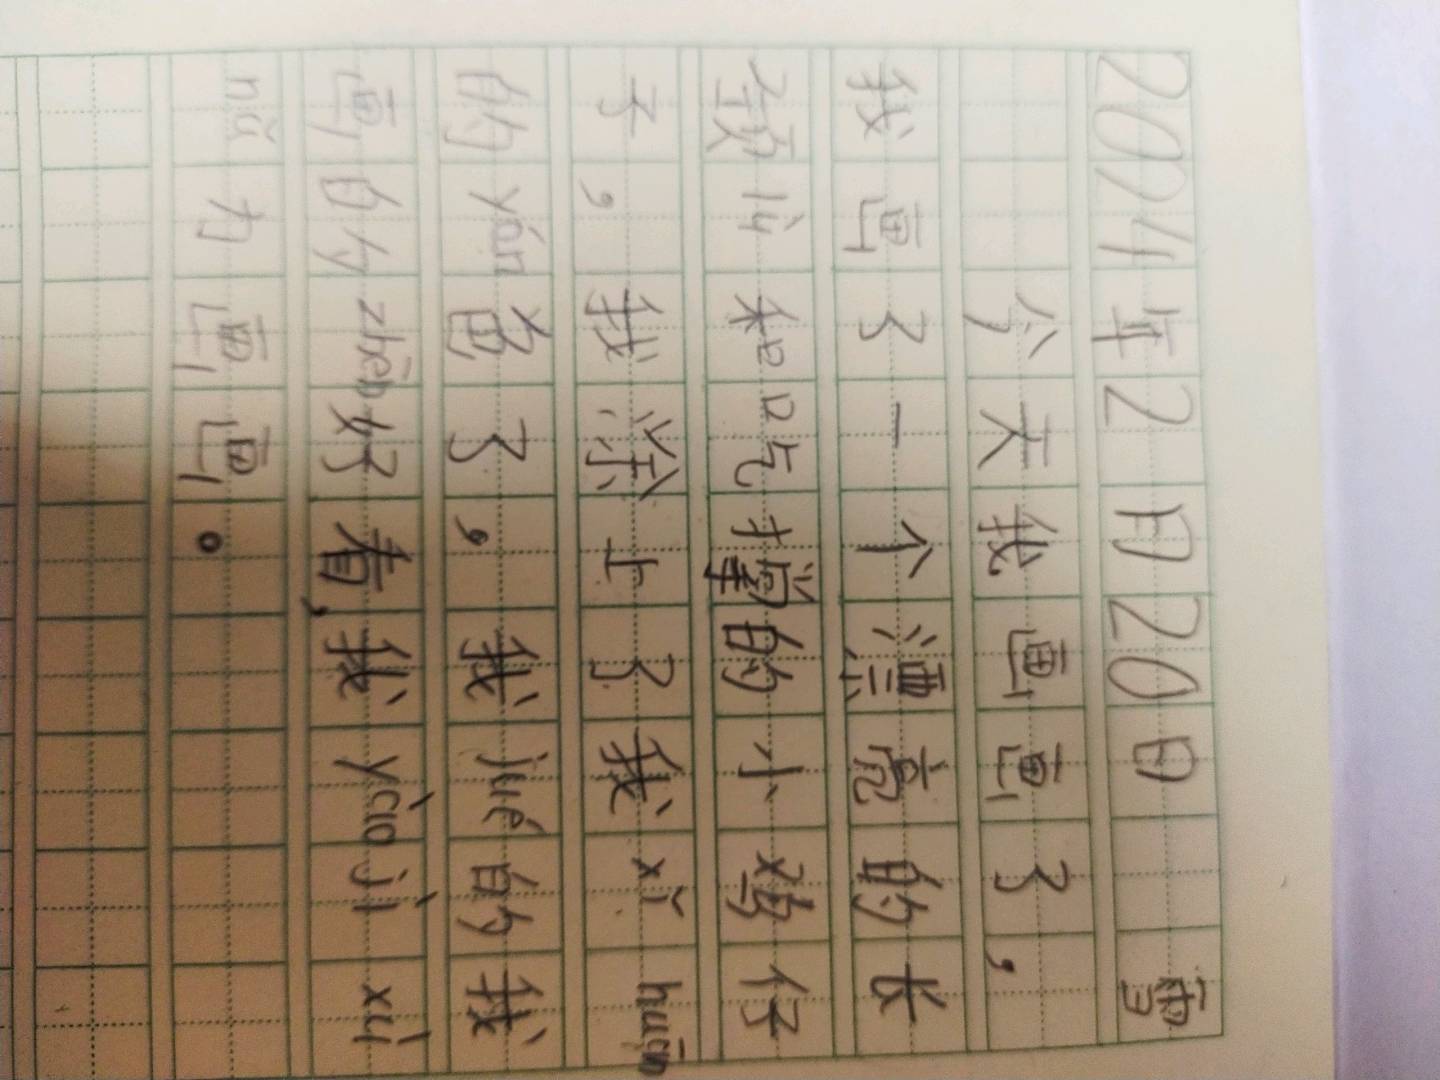 2024年2月20日 雪
今天我画画了,
我画了一个漂亮的长
颈lù和吃掌的小鸡仔
子,我涂上了我xǐ huān
的yán色了,我jué的我
画的zhēn好看,我yào jì xù
nǔ力画画。